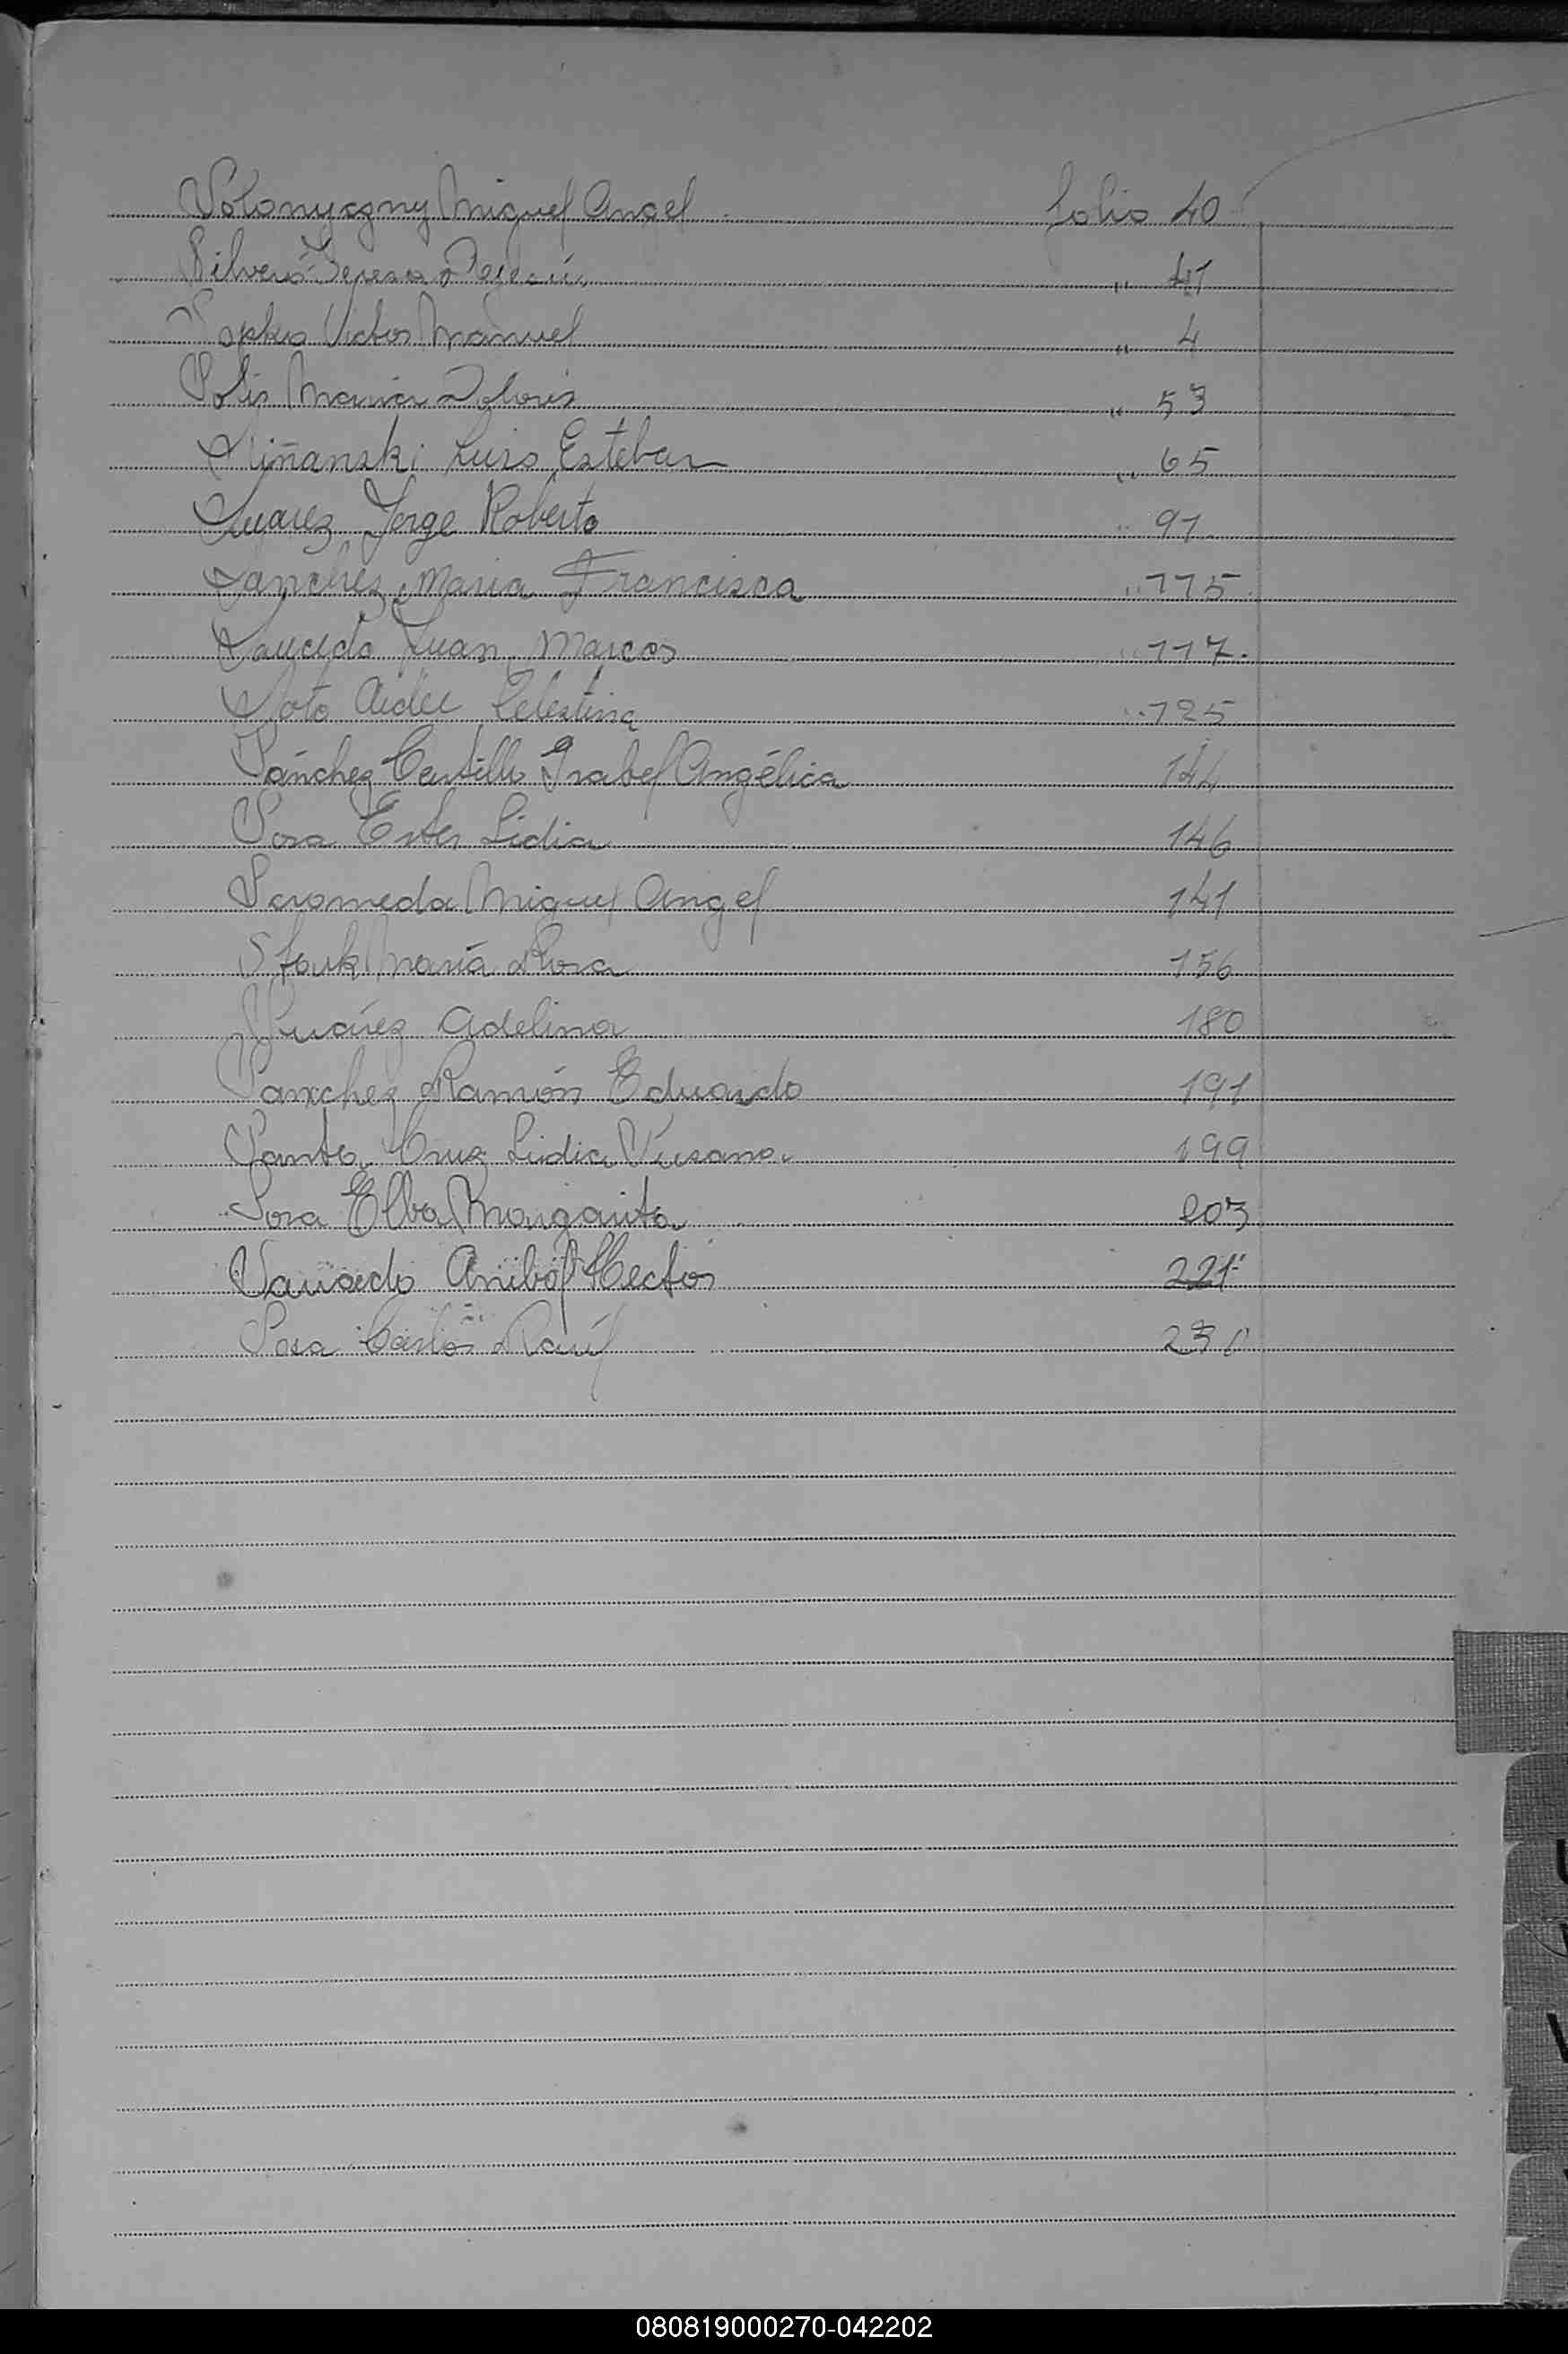 Solonyezny Miguel Angel folio 40
Silvero Teresa " 41
Victor Manuel " 4
Solis Maria Dolores " 53
Luis Esteban " 65
Suarez Jorge Roberto " 91
Sanchez Maria Francisca " 115
Saucedo Juan Marcos " 117
Soto Aidee Celestina " 125
Sánchez Castillo Isabel Angélica 144
Sosa Ester Lidia 146
Miguel Angel 141
Stark María Rosa 156
Suárez Adelina 180
Sanchez Ramón Eduardo 191
Santa Cruz Lidia Susana 199
Sosa Elba Margarita 203
Anibal Hector 221
Sosa Carlos Raúl 230
080819000270-042202